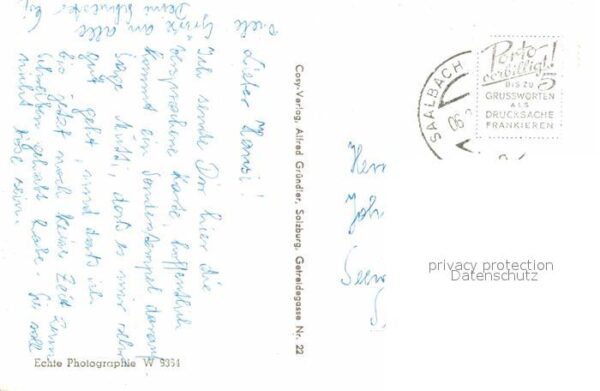 Lieber Hansi!
Ich sende Dir hier die
versprochene Karte, hoffentlich
kommt ein Sonderstempel darauf.
Sage Mutti, daß es mir sehr
gut geht, und daß ich
bis jetzt noch keine Zeit zum
Schreiben gehabt habe. Sie soll
nicht böse sein.
Viele
Grüße an alle
Deine Schwester
Cosy-Verlag, Alfred Gründler, Salzburg, Getreidegasse Nr. 22
Echte Photographie W 9364
SAALBACH
Porto
verbilligt!
BIS ZU 5
GRUSSWORTEN
ALS
DRUCKSACHE
FRANKIEREN
privacy protection
Datenschutz